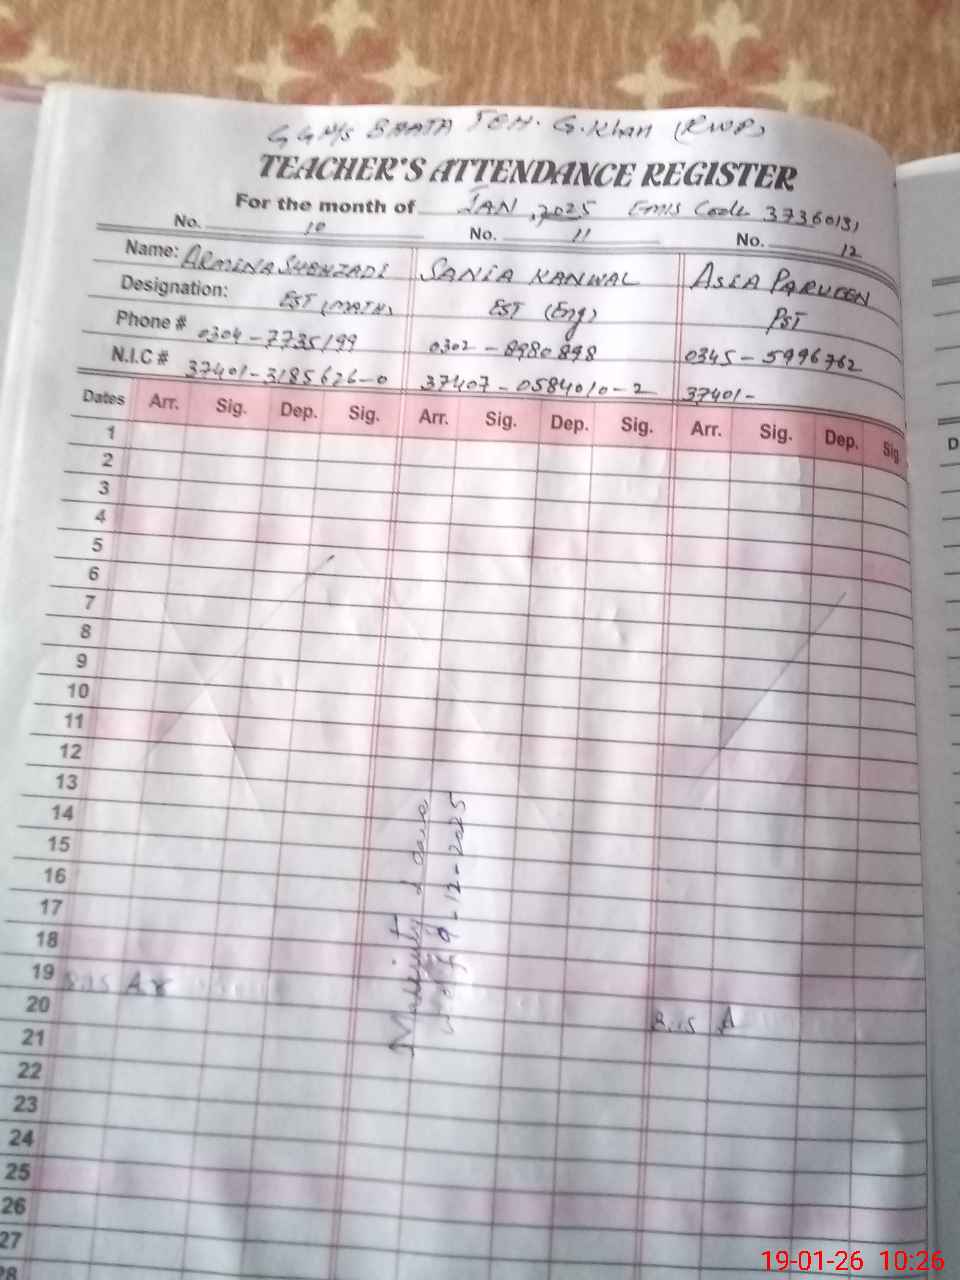 GGM/S BHATA TEH. G.Khan (RWP)
TEACHER'S ATTENDANCE REGISTER
For the month of JAN, 2025 Emis Code 37360131
No. 10 No. 11 No. 12
Name: ARMINA SHEHZADI SANIA KANWAL ASIA PARVEEN
Designation: EST (MATH) EST (Eng) PST
Phone # 0304-7735199 0302-8980898 0345-5996762
N.I.C # 37401-3185626-0 37407-0584010-2 37401-
Dates Arr. Sig. Dep. Sig. Arr. Sig. Dep. Sig. Arr. Sig. Dep. Sig.
1
2
3
4
5
6
7
8
9
10
11
12
13
14
15
16
17
18
19 8.15 A
20 8.15 A
21
22
23
24
25
26
27
28
9-12-2025
D
19-01-26 10:26